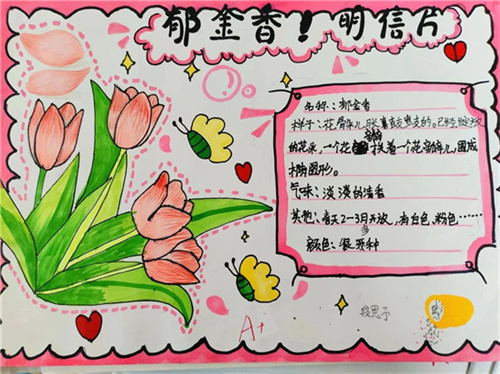 郁金香！明信片
名称：郁金香
样子：花骨朵儿胀真鼓鼓的。已经绽放
的花朵，一个花瓣挨着一个花瓣儿，围成
椭圆形。
气味：淡淡的清香
其他：春天2-3月开放，有白色、粉色……
颜色：很多种
段思予
A+